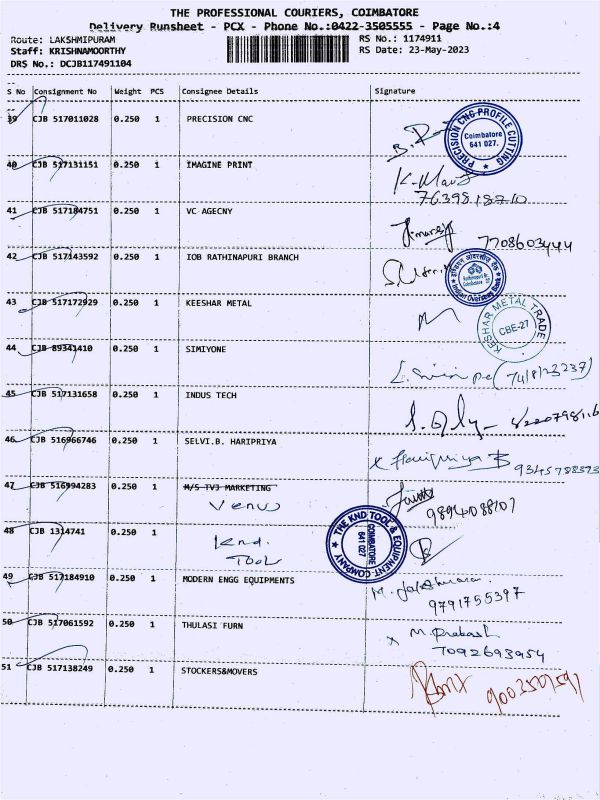 THE PROFESSIONAL COURIERS, COIMBATORE
Delivery Runsheet - PCX - Phone No.:0422-3505555 - Page No.:4
Route: LAKSHMIPURAM RS No.: 1174911
Staff: KRISHNAMOORTHY RS Date: 23-May-2023
DRS No.: DCJB117491104
S No Consignment No Weight PCS Consignee Details Signature
39 CJB 517011028 0.250 1 PRECISION CNC
PRECISION CNC PROFILE CUTTING
Coimbatore
641 027.
40 CJB 517131151 0.250 1 IMAGINE PRINT
7639818710
41 CJB 517184751 0.250 1 VC AGECNY
7708603444
42 CJB 517143592 0.250 1 IOB RATHINAPURI BRANCH
Indian Overseas Bank
43 CJB 517172929 0.250 1 KEESHAR METAL
KESHAR METAL TRADE
CBE-27
44 CJB 89341410 0.250 1 SIMIYONE
45 CJB 517131658 0.250 1 INDUS TECH
46 CJB 516966746 0.250 1 SELVI.B. HARIPRIYA
x Haripriya B
47 CJB 516994283 0.250 1 M/S TVJ MARKETING
Venus
48 CJB 1314741 0.250 1 Knd.
Tool
THE KND TOOL & EQUIPMENT COMPANY
COIMBATORE
641 027
49 CJB 517184910 0.250 1 MODERN ENGG EQUIPMENTS
9791755397
50 CJB 517061592 0.250 1 THULASI FURN
x M. Prakash
7092693954
51 CJB 517138249 0.250 1 STOCKERS&MOVERS